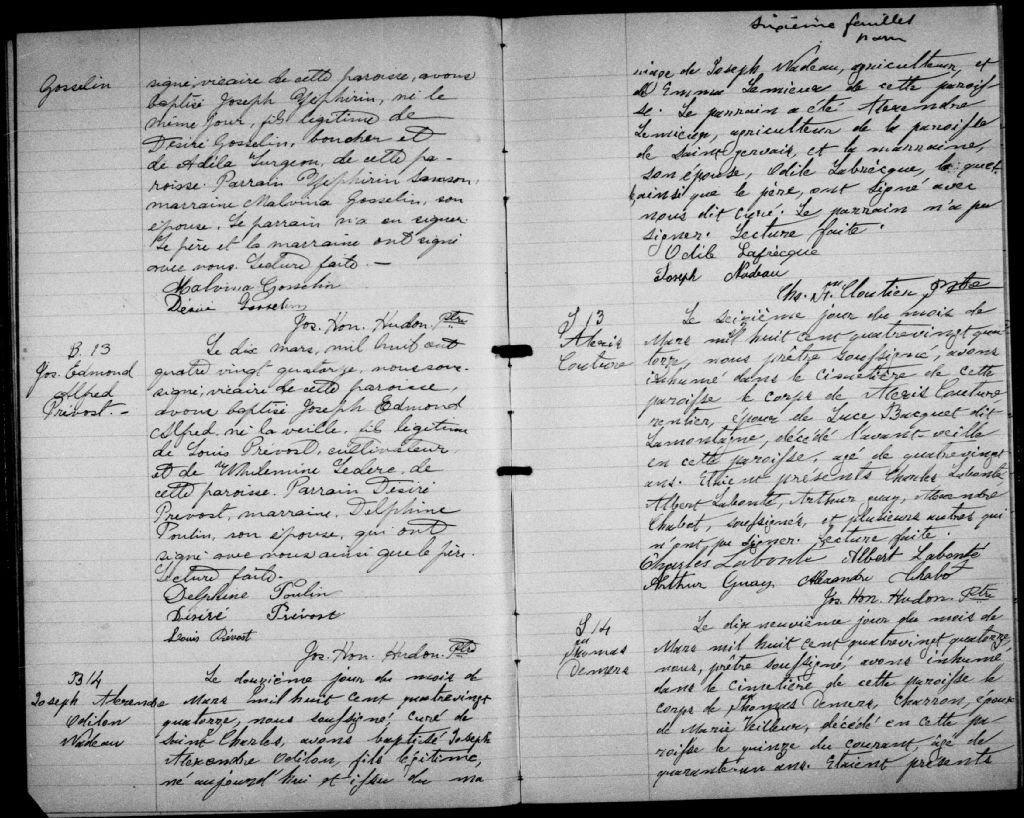 Gosselin
signé, vicaire de cette paroisse, avons
baptisé Joseph Zéphirin, né le
même jour, fils légitime de
Désiré Gosselin, boucher et
de Adéla Turgeon, de cette pa-
roisse. Parrain Zéphirin Samson,
marraine Malvina Gosselin, son
épouse. Le parrain n'a su signer
Le père et la marraine ont signé
avec nous. Lecture faite. —
Malvina Gosselin
Désiré Gosselin
Jos. Hon. Hudon. Ptre
B. 13
Jos. Edmond
Alfred
Prévost. -
Le dix mars, mil huit cent
quatre vingt quatorze, nous sous-
signé, vicaire de cette paroisse,
avons baptisé Joseph Edmond
Alfred, né la veille, fils légitime
de Louis Prévost, cultivateur,
et de Leclerc, de
cette paroisse. Parrain Désiré
Prévost, marraine, Delphine
Poulin, son épouse, qui ont
signé avec nous ainsi que le père.
Lecture faite. -
Delphine Poulin
Désiré Prévost
Louis Prévost
Jos. Hon. Hudon. Ptre
B 14
Joseph Alexandre
Odilon
Nadeau
Le douzième jour du mois de
Mars mil huit cent quatrevingt
quatorze, nous soussigné, curé de
Saint Charles, avons baptisé Joseph
Alexandre Odilon, fils légitime,
né aujourd'hui et issu du ma
Sixième feuillet
riage de Joseph Nadeau, agriculteur, et
d'Emma Lemieux de cette parois-
se. Le parrain a été Alexandre
Lemieux, agriculteur de la paroisse
de Saint Gervais, et la marraine,
son épouse, Odile Labrecque, laquel-
ainsi que le père, ont signé avec
nous dit curé. Le parrain n'a pu
signer. Lecture faite.
Odile Labrecque
Joseph Nadeau
Chs. Nn. Cloutier Ptre
S 13
Alexis
Couture
Le seizième jour du mois de
Mars mil huit cent quatrevingt qua-
torze, nous prêtre soussigné, avons
inhumé dans le cimetière de cette
paroisse le corps de Alexis Couture
rentier, époux de Luce Bacquet dit
Lamontagne, décédé l'avant-veille
en cette paroisse, agé de quatrevingt
ans. Etaient présents Charles Labonté,
Albert Labonté, Arthur Guay, Alexandre
Chabot, soussignés, et plusieurs autres qui
n'ont pu signer. Lecture faite.
Charles Labonté Albert Labonté
Arthur Guay Alexandre Chabot
Jos. Hon. Hudon. Ptre
S 14
Thomas
Demers
Le dixneuvième jour du mois de
Mars mil huit cent quatrevingt quatorze,
nous, prêtre soussigné, avons inhumé
dans le cimetière de cette paroisse le
corps de Thomas Demers, Charron, époux
de Marie Veilleux, décédé en cette pa-
roisse le quinze du courant, âgé de
quarante-un ans. Etaient présents